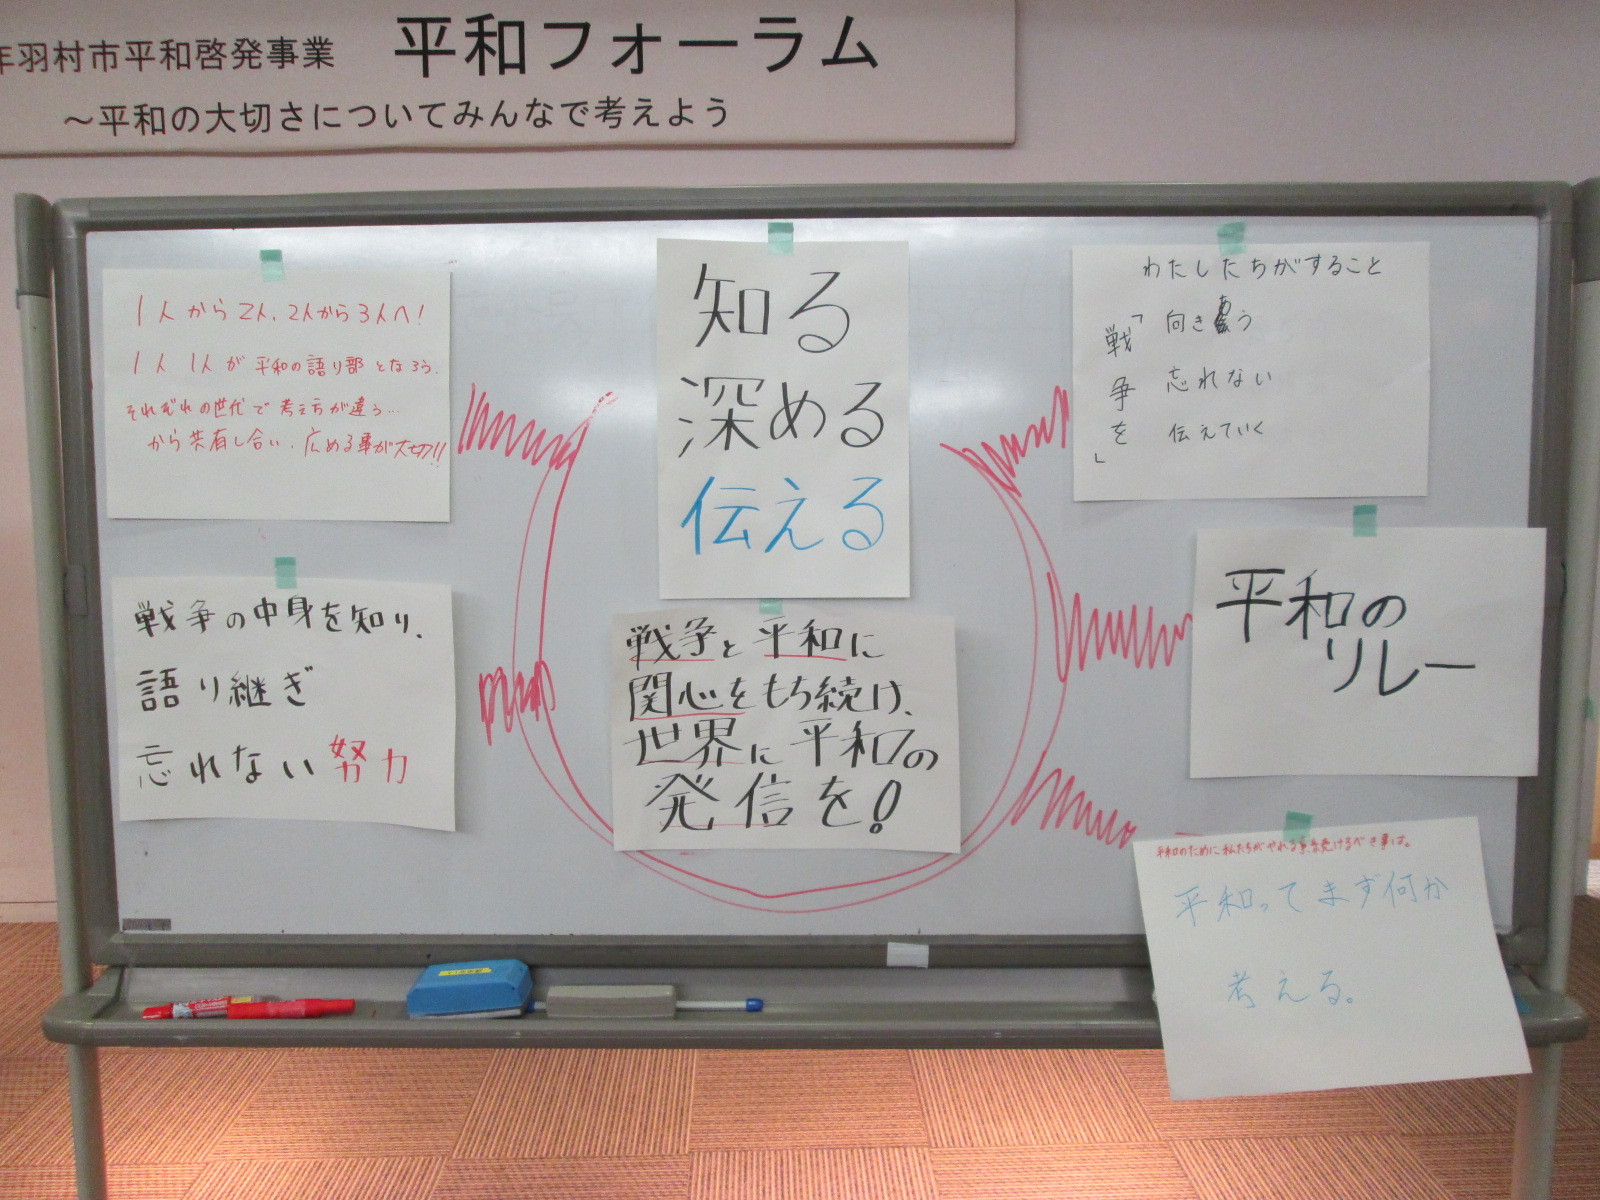 年羽村市平和啓発事業 平和フォーラム
～平和の大切さについてみんなで考えよう
1人から2人、2人から3人へ!
1人1人が平和の語り部となろう.
それぞれの世代で考え方が違う…
から共有し合い、広める事が大切!!
戦争の中身を知り、
語り継ぎ
忘れない努力
知る
深める
伝える
戦争と平和に
関心をもち続け、
世界に平和の
発信を!
わたしたちがすること
「戦争を」
向きあう
忘れない
伝えていく
平和の
リレー
平和のために私たちがやれる事、続けるべき事は。
平和ってまず何か
考える。